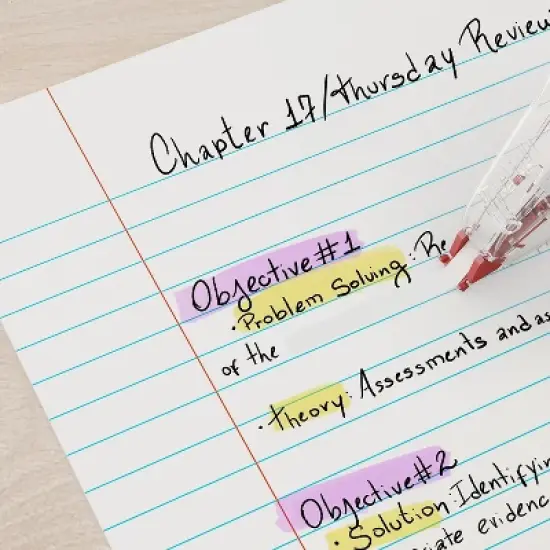 Chapter 17/Thursday Review
Objective #1
· Problem Solving: Re
of the
· Theory: Assessments and as
Objective #2
· Solution: Identifyin
ciate evidenc